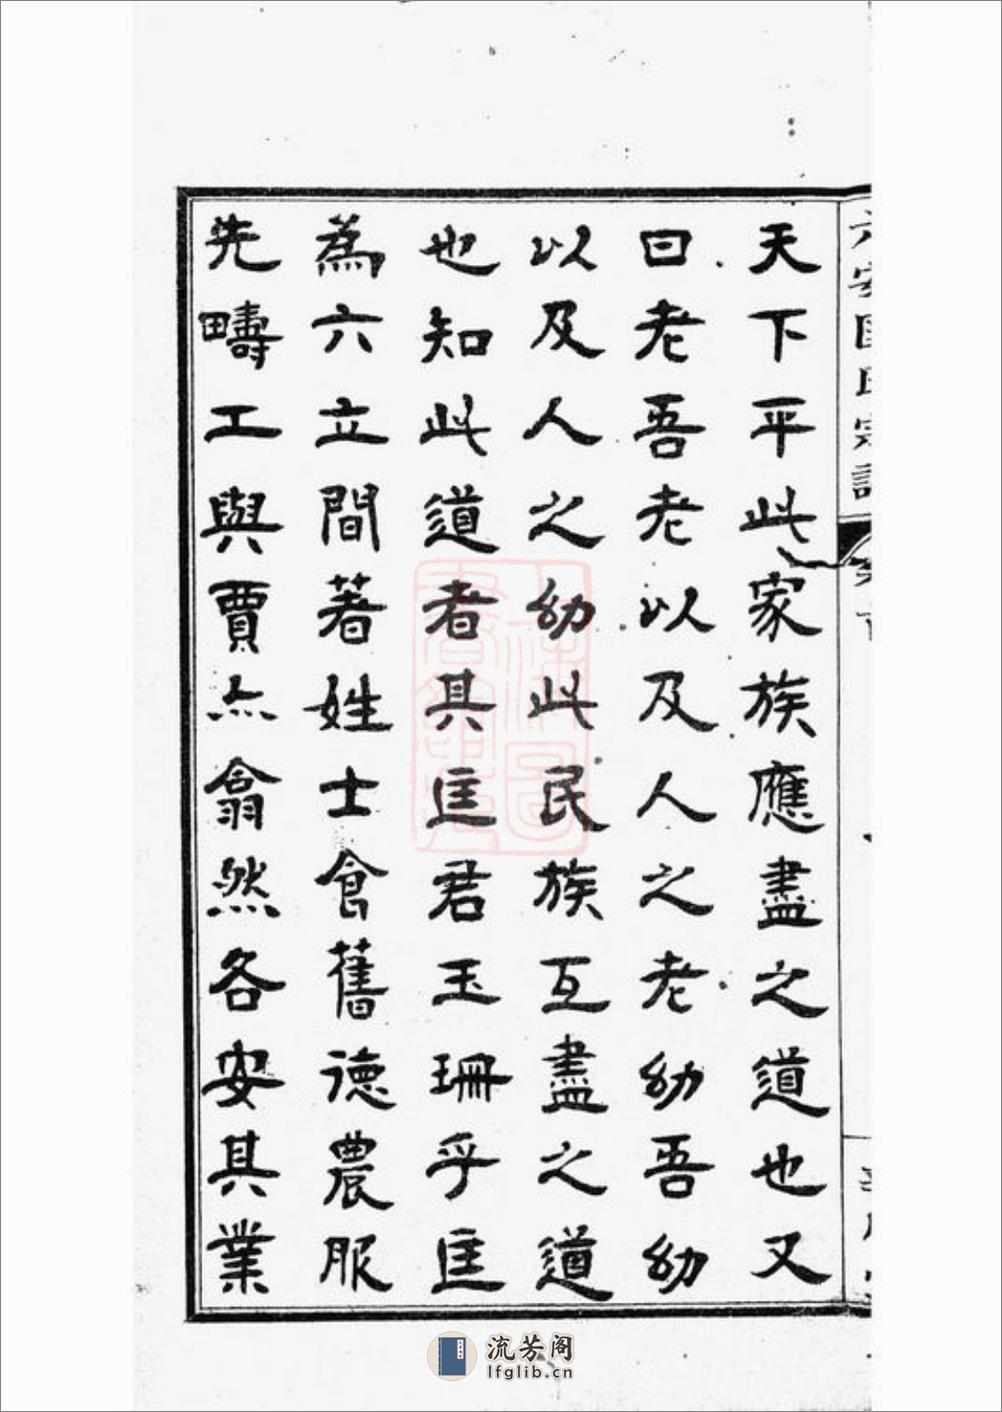 天下平此家族應盡之道也又
曰老吾老以及人之老幼吾幼
以及人之幼此民族互盡之道
也知此道者其匡君玉珊乎匡
為六立間著姓士食舊德農服
先疇工與賈亦翕然各安其業
六安匡氏宗譜
流芳阁
lfglib.cn